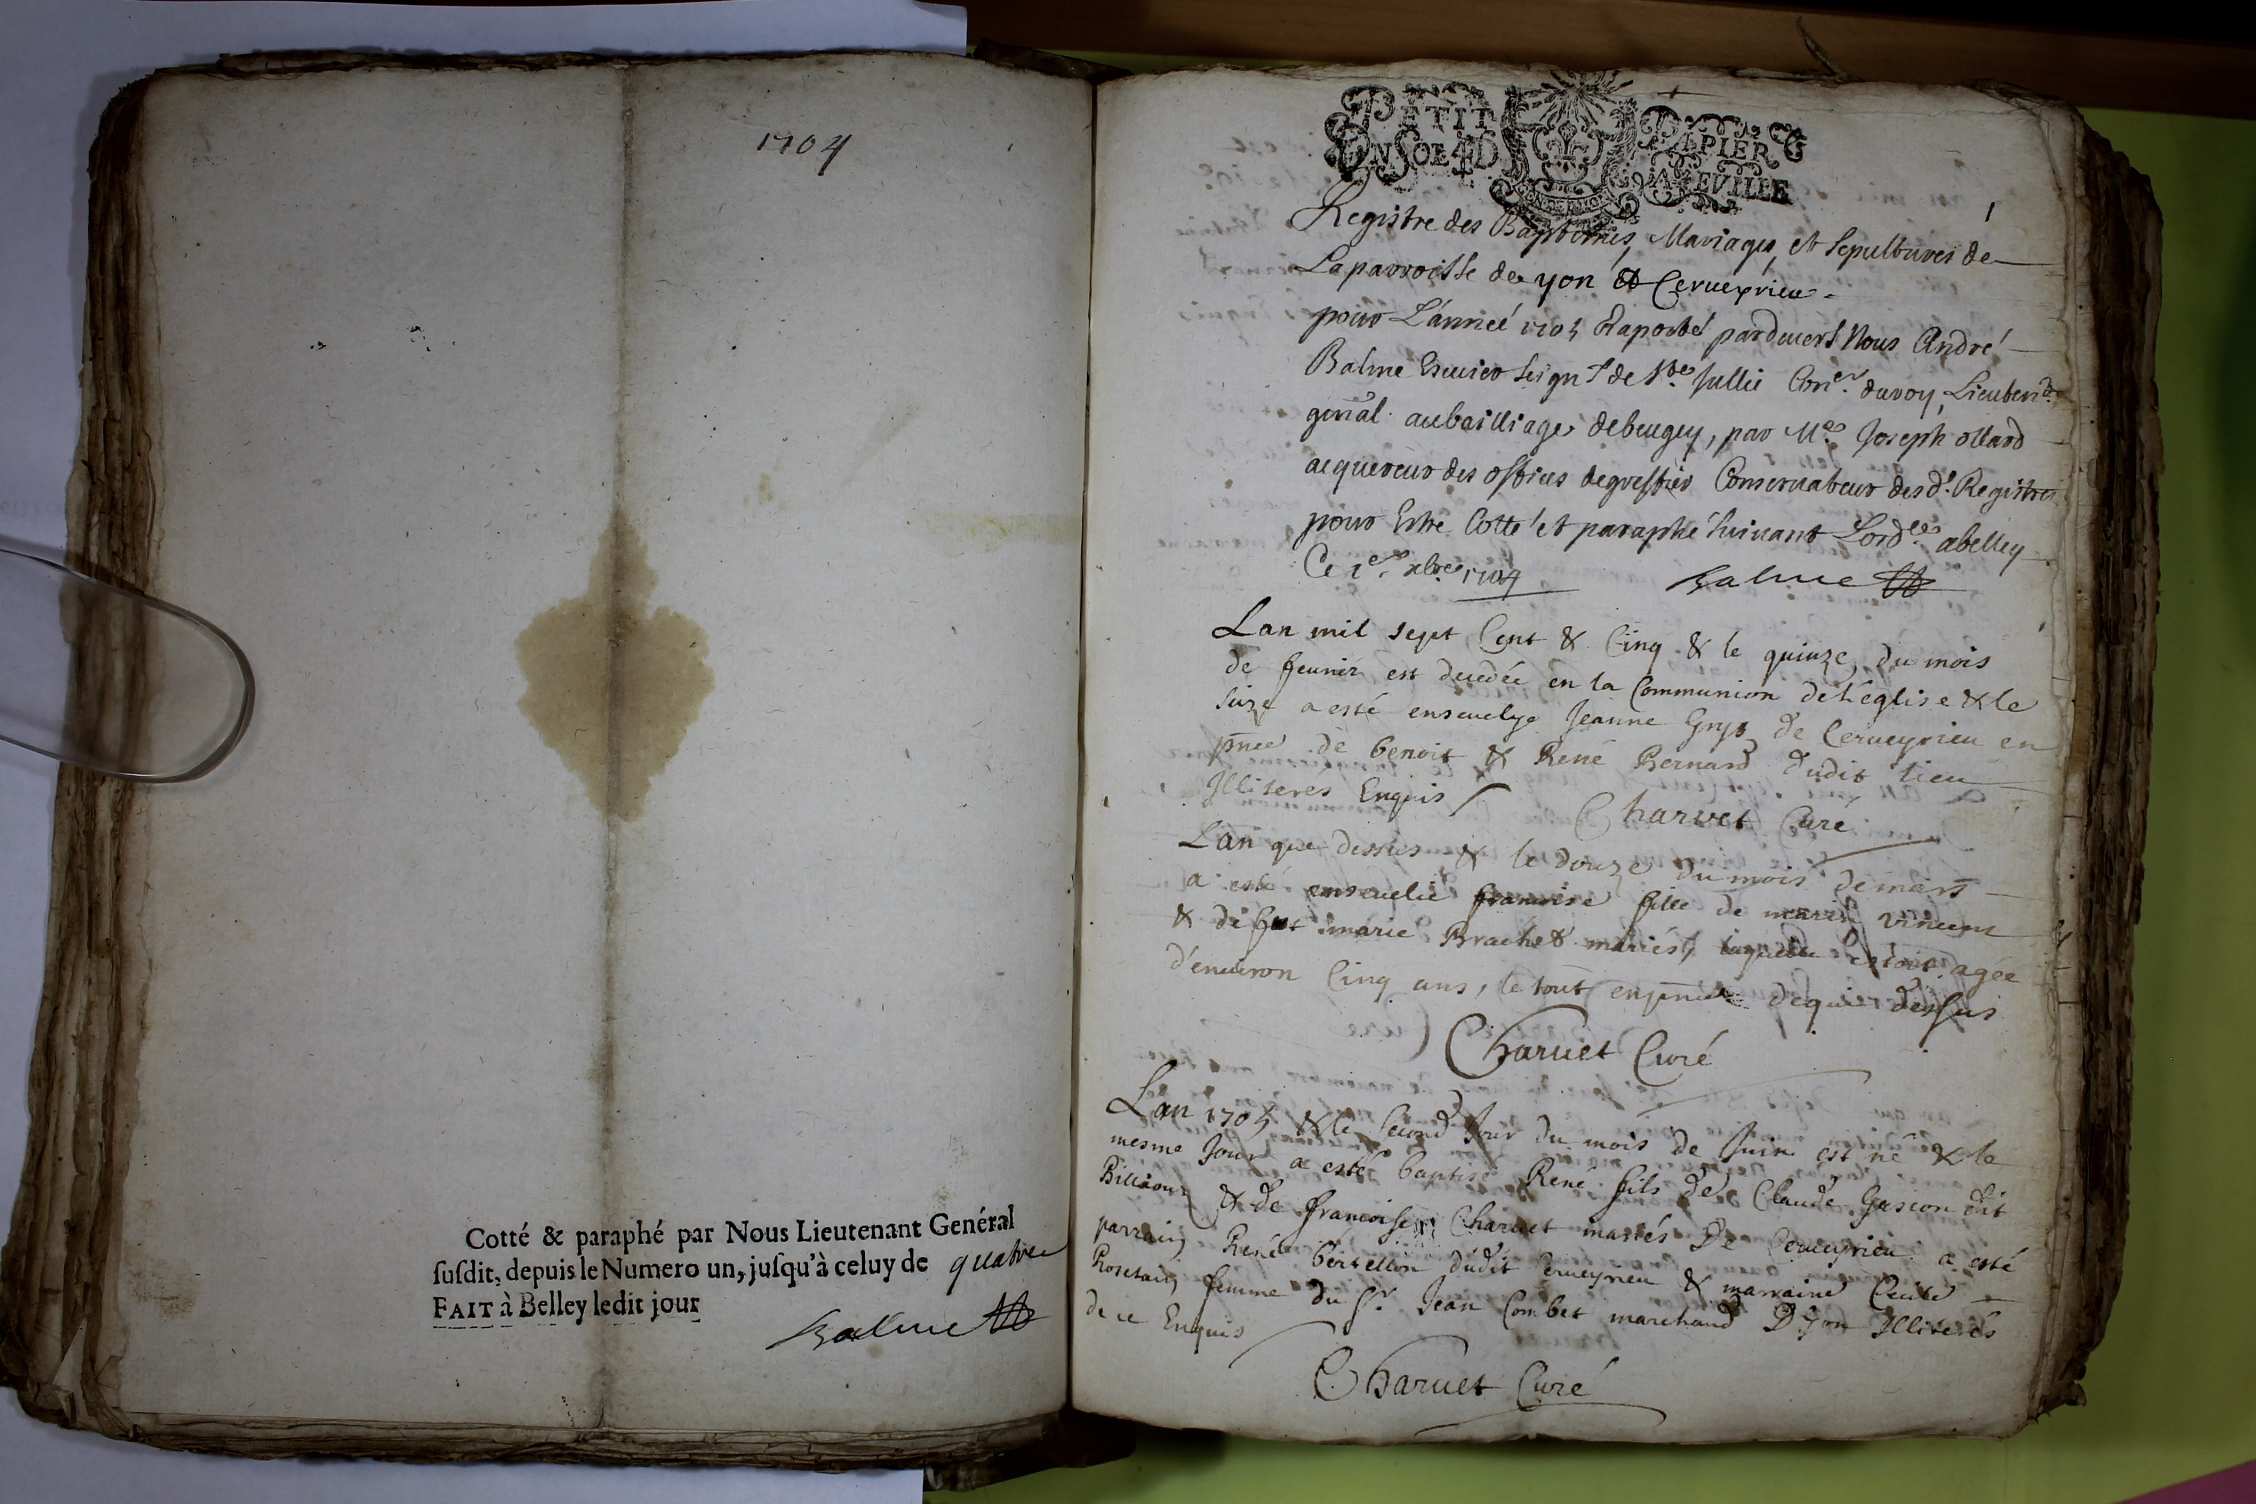 1704
Cotté & paraphé par Nous Lieutenant Genéral
susdit, depuis le Numero un, jusqu'à celuy de quatre
FAIT à Belley ledit jour
Balme
PETIT PAPIER
UN SOL 4 D LA FEUILLE
1
Registre des Baptesmes, Mariages, et Sepultures de
La parroisse de yon & Cerueyrieu
pour L'année 1705 Raporté pardeuers Nous André
Balme Escuier Seignr de Ste Jullie Coner du roy, Lieutent
genãl au bailliage de beugey, par Me Joseph ollard
acquereur des offices de greffier Conseruateur des d. Registres
pour Estre Cotté et paraphé suiuant Lordce a belley
Ce 1er xbre 1704 Balme
Lan mil sept Cent & Cinq & le quinze du mois
de feurier est decedée en la Communion de L'église & le
seize a esté enseuelye Jeanne de Cerueyrieu en
pnce de benoit & René Bernard dudit lieu
Illiterés Enquis Charuet Curé
L'an que dessus & le douze du mois de mars
a esté enseuelie francoise fille de Vincent
& defunt marie Brachet mariés, laquelle estoit agée
d'enuiron Cinq ans, le tout en pnce de qui dessus
Charuet Curé
Lan 1705 & le second Jour du mois de Juin est né & le
mesme Jour a esté baptisé René fils de Claude Gascon dit
Billioux & de francoise Charuet mariés De Cerueyrieu a esté
parrain René bertellon dudit Cerueyrieu & marraine Cecile
Rosetain femme du Sr. Jean Combet marchand D'yon Illiterés
de ce Enquis
Charuet Curé